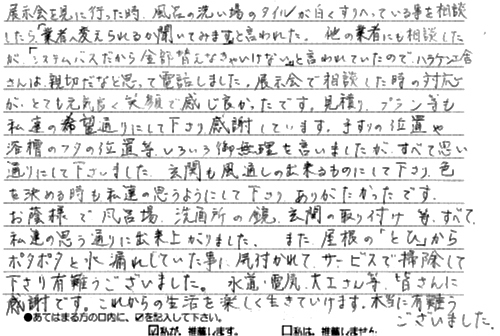 展示会を見に行った時、風呂の洗い場のタイルが白くすりへっている事を相談
したら「業者へ変えられるか聞いてみます」と言われた。他の業者にも相談した
が、「システムバスだから全部替えなきゃいけない」と言われていたので、ハラケン舎
さんは親切だなと思って電話しました。展示会で相談した時の対応
が、とても元気良く笑顔で感じ良かったです。見積り、プラン等も
私達の希望通りにして下さり感謝しています。手すりの位置や
浴槽のフタの位置等、いろいろ御無理を言いましたが、すべて思い
通りにして下さいました。玄関も風通しの出来るものにして下さり、色
を決める時も私達の思うようにして下さり、ありがたかったです。
お蔭様で風呂場、洗面所の鏡、玄関の取り付け等、すべて、
私達の思う通りに出来上がりました。また、屋根の「とひ」から
ポタポタと水漏れしていた事に気付かれて、サービスで掃除して
下さり有難うございました。水道・電気・大工さん等、皆さんに
感謝です。これからの生活を楽しく生きていけます。本当に有難う
ございました
●あてはまる方の口内に、☑を記入して下さい。
☑私が、推薦します。 □私は、推薦しません。